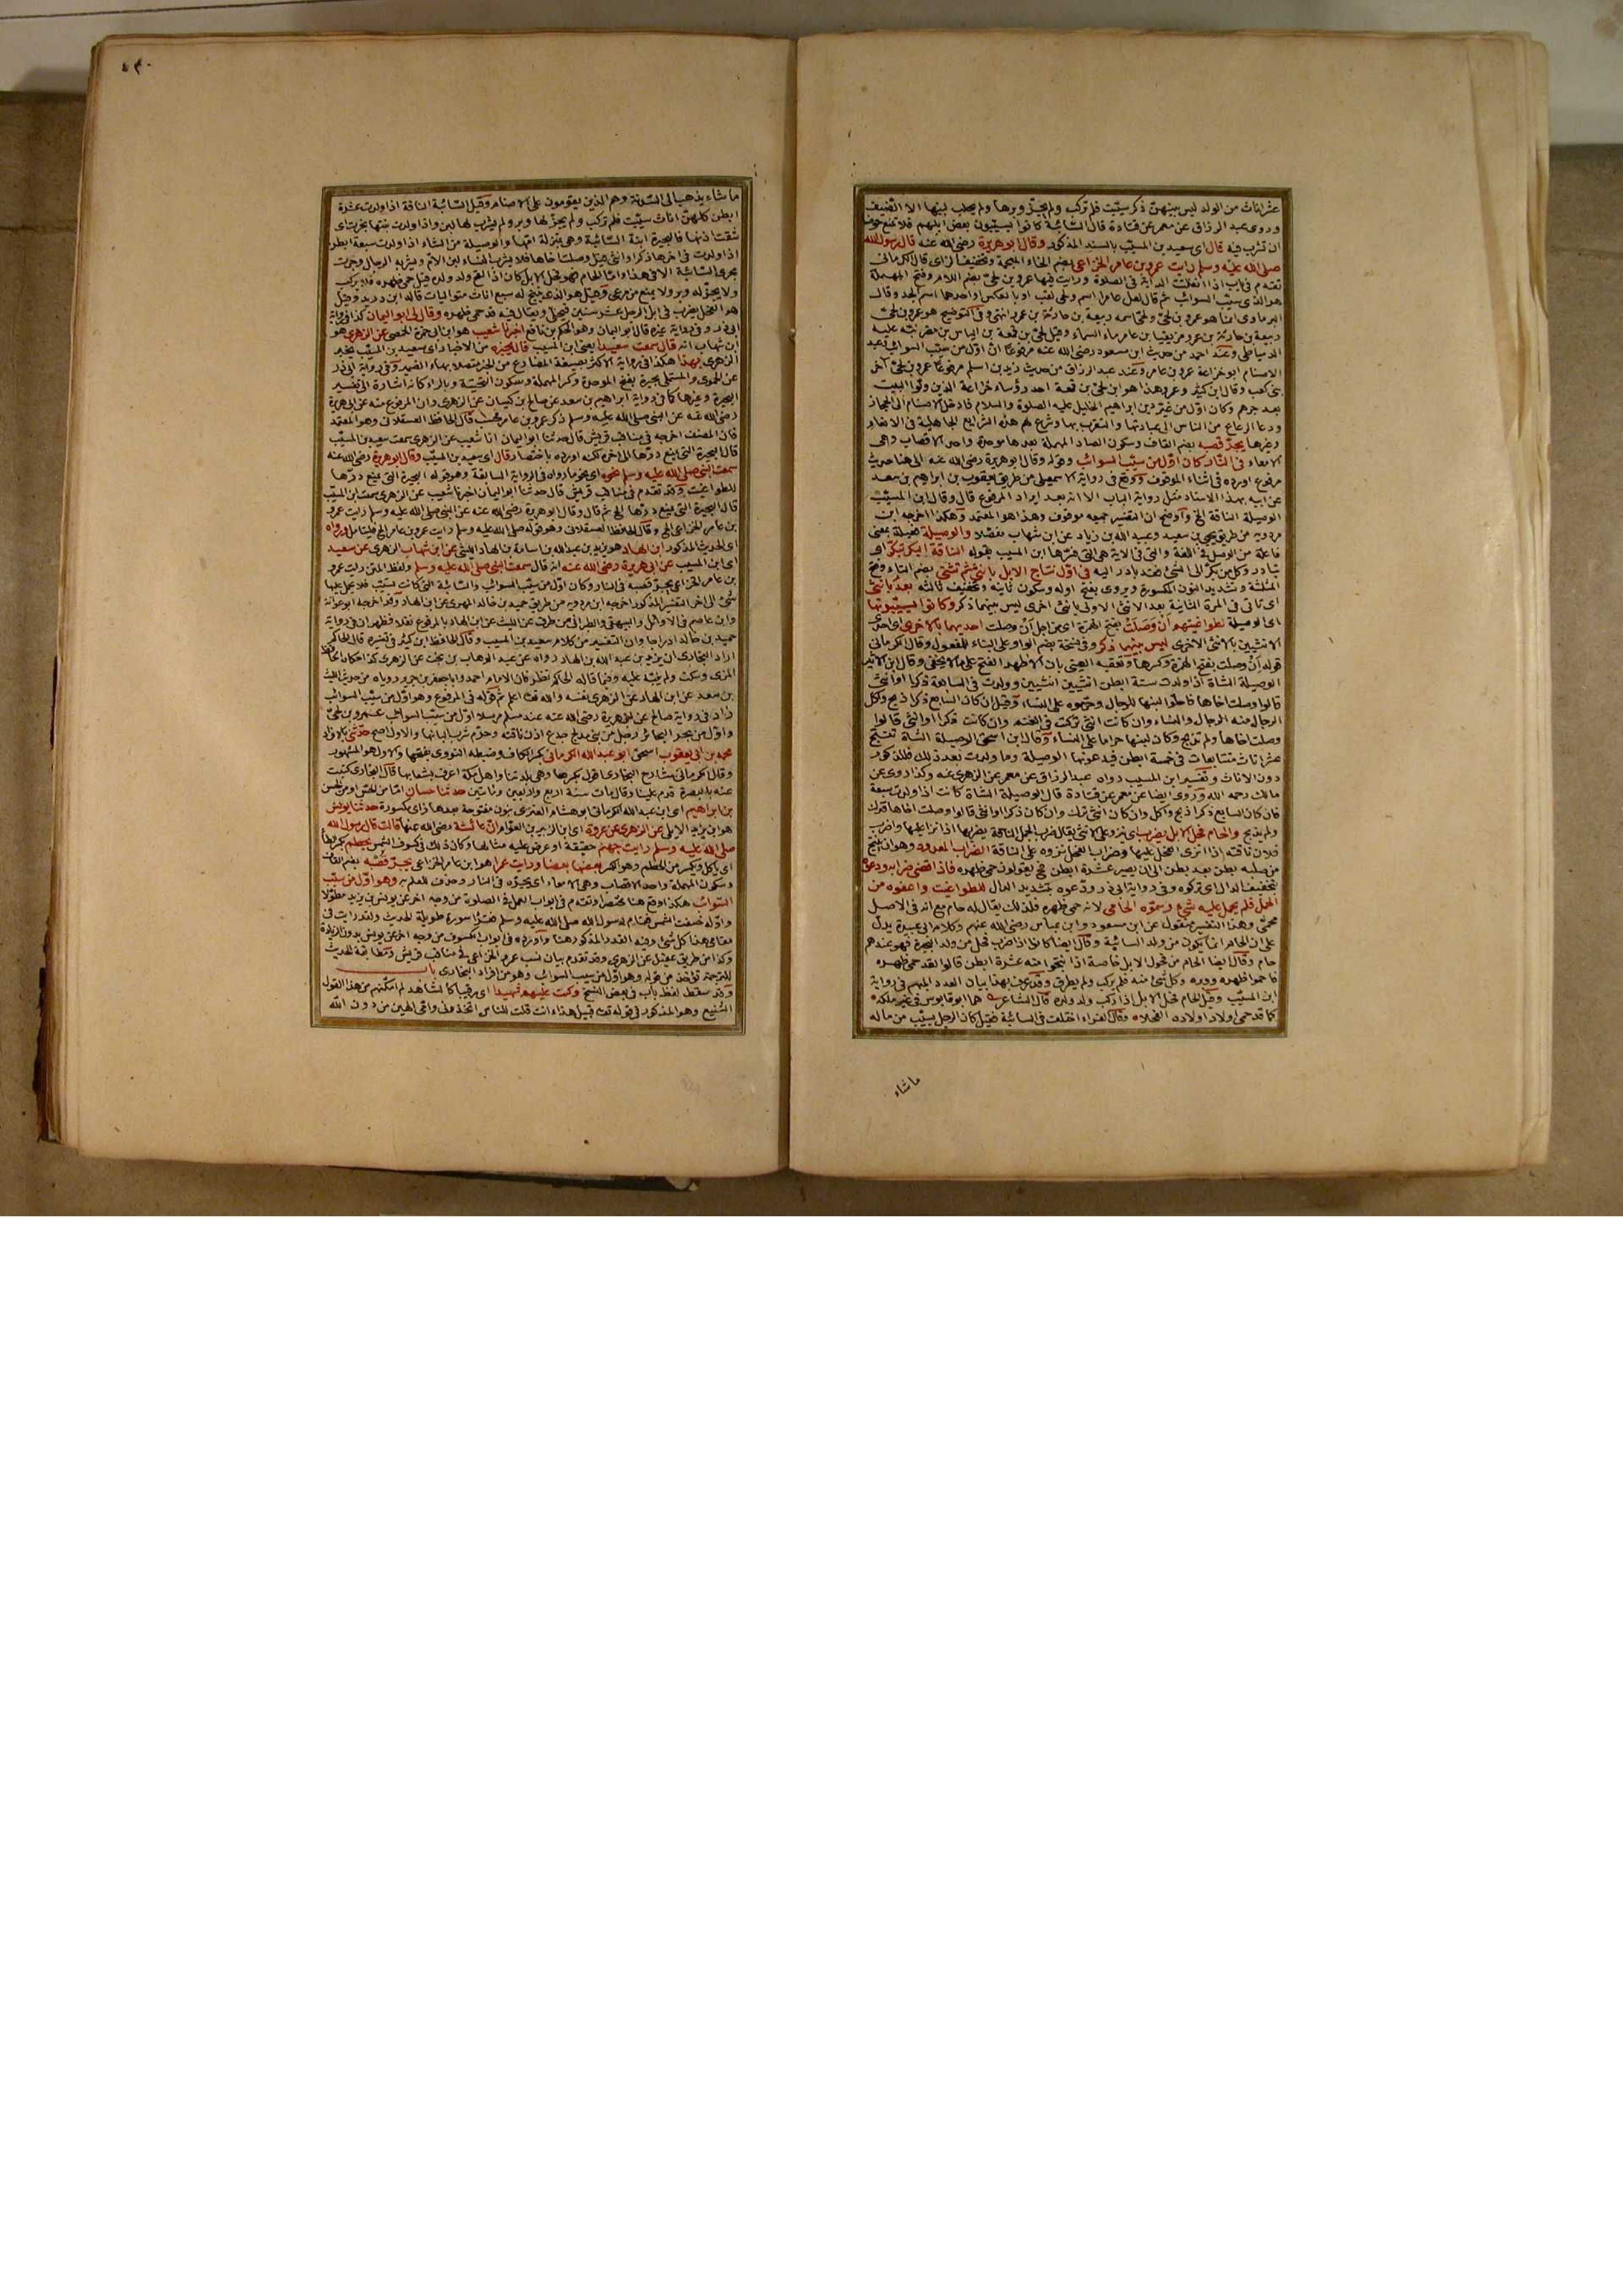 عشر اناث من الولد ليس بينهن ذكر سيبت فلم تركب ولم يجز وبرها ولم يحلب لبنها الا لضيف
وروى عبد الرزاق عن معمر عن قتادة قال السائبة كانوا يسيبون بعض ابلهم فلا تمنع حوضا
ان تشرب فيه قال اى سعيد بن المسيب بالسند المذكور وقال ابو هريرة رضى الله عنه قال رسول الله
صلى الله عليه وسلم رايت عمرو بن عامر الخزاعى بضم الخاء المعجمة وتخفيف الزاى قال الكرمانى
تقدم فى باب اذا انفلتت الدابة فى الصلوة ورايت فيها عمرو بن لحى بضم اللام وفتح المهملة
هو الذى سيب السوائب ثم قال لعل عامرا اسم ولحى لقب او بالعكس او احدهما اسم الجد وقال
البرماوى انما هو عمرو بن لحى ولحى اسمه ربيعة بن حارثة بن عمرو انتهى وفى التوضيح هو عمرو بن لحى
الدمياطى وعند احمد من حديث ابن مسعود رضى الله عنه مرفوعا ان اول من سيب السوائب وعبد
الاصنام ابو خزاعة عمرو بن عامر وعند عبد الرزاق من حديث زيد بن اسلم مرفوعا عمرو بن لحى اخو
بنى كعب وقال ابن كثير وعمرو هذا هو ابن لحى بن قمعة احد رؤساء خزاعة الذين ولوا البيت
بعد جرهم وكان اول من غير دين ابراهيم الخليل عليه الصلوة والسلام فادخل الاصنام الى الحجاز
ودعا الرعاع من الناس الى عبادتها والتقرب بها وشرع لهم هذه الشرائع الجاهلية فى الانعام
وغيرها يجر قصبه بضم القاف وسكون الصاد المهملة بعدها موحدة واحد الاقصاب وهى
الامعاء فى النار كان اول من سيب السوائب وقوله وقال ابو هريرة رضى الله عنه الى هنا حديث
مرفوع اورده فى اثناء الموقوف ووقع فى رواية الاسمعيلى من طريق يعقوب بن ابراهيم بن سعد
عن ابيه بهذا الاسناد مثل رواية الباب الا انه بعد ايراد المرفوع قال وقال ابن المسيب
الوصيلة الناقة الخ واوضح ان التفسير جميعه موقوف وهذا هو المعتمد وهكذا اخرجه ابن
مردويه من طريق يحيى بن سعيد وعبيد الله بن زياد عن ابن شهاب مفصلا والوصيلة فعيلة بمعنى
فاعلة من الوصل فى اللغة والتى فى الاية هى التى فسرها ابن المسيب بقوله الناقة البكر تبكر اى
تبادر وكل من بكر الى الشئ فقد بادر اليه فى اول نتاج الابل بانثى ثم تثنى بضم التاء وفتح
المثلثة وتشديد النون المكسورة ويروى بفتح اوله وسكون ثانيه وتخفيف ثالثه بعد بانثى
اى تاتى فى المرة الثانية بعد الانثى الاولى بانثى اخرى ليس بينهما ذكر وكانوا يسيبونها
اى الوصيلة لطواغيتهم ان وصلت بفتح الهمزة اى من اجل ان وصلت احديهما بالاخرى اى احدى
الانثيين بالانثى الاخرى ليس بينهما ذكر وفى نسخة بضم الواو على البناء للمفعول وقال الكرمانى
قوله ان وصلت بفتح الهمزة وكسرها وتعقبه العينى بان الاظهر الفتح على ما لا يخفى وقال ابن الاثير
الوصيلة الشاة اذا ولدت ستة ابطن انثيين انثيين وولدت فى السابعة ذكرا وانثى
قالوا وصلت اخاها فاحلوا لبنها للرجال وحرموه على النساء وقيل ان كان السابع ذكرا ذبح واكل
الرجال منه الرجال والنساء وان كانت انثى تركت فى الغنم وان كانت ذكرا وانثى قالوا
وصلت اخاها ولم تذبح وكان لبنها حراما على النساء وقال ابن اسحق الوصيلة الشاة تنتج
عشر اناث متتابعات فى خمسة ابطن فيدعونها الوصيلة وما ولدت بعد ذلك فللذكور
دون الاناث وتفسير ابن المسيب رواه عبد الرزاق عن معمر عن الزهرى عنه وكذا روى عن
مالك رحمه الله وروى ايضا عن معمر عن قتادة قال الوصيلة الشاة كانت اذا ولدت سبعة
فان كان السابع ذكرا ذبح واكل وان كان انثى ترك وان كان ذكرا وانثى قالوا وصلت اخاها فترك
ولم يذبح والحام فحل الابل يضرب اى ينزو على الانثى يقال ضرب الجمل الناقة يضربها اذا نزا عليها واضرب
فلان ناقته اذا انزى الفحل عليها وضراب الفحل نزوه على الناقة الضراب المعدود وهو ان ينتج
من صلبه بطن بعد بطن الى ان يصير عشرة ابطن فح يقولون حمى ظهره فاذا قضى ضرابه ودعوه
بتخفيف الدال اى تركوه وفى رواية ابى ذر ودعوه بتشديد الدال للطواغيت واعفوه من
الحمل فلم يحمل عليه شئ وسموه الحامى لانه حمى ظهره فلذلك يقال له حام مع انه فى الاصل
محمى وهذا التفسير منقول عن ابن مسعود وابن عباس رضى الله عنهم وكلام ابى عبيدة يدل
على ان الحام انما يكون من ولد السائبة وقال ايضا كانوا اذا ضرب فحل من ولد البحيرة فهو عندهم
حام وقال ايضا الحام من فحول الابل خاصة اذا نتجوا منه عشرة ابطن قالوا قد حمى ظهره
فاحموا ظهره ووبره وكل شئ منه فلم يركب ولم يطرق وقد عرف بهذا بيان العدد المبهم فى رواية
ابن المسيب وقيل الحام فحل الابل اذا ركب ولد ولده قال الشاعر حماها ابو قابوس فى غير ملكه
كما قد حمى اولاد اولاده الفحلا وقال الفراء اختلف فى السائبة فقيل كان الرجل يسيب من ماله
ما شاء
٤٣٠
ما شاء يذهب الى السدنة وهم الذين يقومون على الاصنام وقيل السائبة الناقة اذا ولدت عشرة
ابطن كلهن اناث سيبت فلم تركب ولم يجز لها وبر ولم يشرب لها لبن واذا ولدت بنتها بحرت اى
شقت اذنها فالبحيرة ابنة السائبة وهى بمنزلة امها والوصيلة من الشاء اذا ولدت سبعة ابطن
اذا ولدت فى اخرها ذكرا وانثى قيل وصلت اخاها فلا يشرب النساء لبن الام ويشربه الرجال وجرت
مجرى السائبة الا فى هذا واما الحام فهو فحل الابل كان اذا لقح ولد ولده قيل حمى ظهره فلا يركب
ولا يجز له وبر ولا يمنع من مرعى وقيل هو الذى ينتج له سبع اناث متواليات قاله ابن دريد وقيل
هو الفحل يضرب فى ابل الرجل عشر سنين فيخلى ويقال فيه قد حمى ظهره وقال لى ابو اليمان كذا فى رواية
ابى ذر وفى رواية غيره قال ابو اليمان وهو الحكم بن نافع اخبرنا شعيب هو ابن ابى حمزة الحمصى عن الزهرى هو
ابن شهاب انه قال سمعت سعيدا يعنى ابن المسيب قال يخبره من الاخبار اى سعيد بن المسيب يخبر
الزهرى بهذا هكذا فى رواية الاكثر بصيغة المضارع من الخبر متصلا بهاء الضمير وفى رواية ابى ذر
عن الحموى والمستملى بحيرة بفتح الموحدة وكسر المهملة وسكون التحتية وبالراء كانه اشارة الى تفسير
البحيرة وغيرها كما فى رواية ابراهيم بن سعد عن صالح بن كيسان عن الزهرى وان المرفوع منه عن ابى هريرة
رضى الله عنه عن النبى صلى الله عليه وسلم ذكر عمرو بن عامر فحسب قال الحافظ العسقلانى وهو المعتمد
فان المصنف اخرجه فى مناقب قريش قال حدثنا ابو اليمان انا شعيب عن الزهرى سمعت سعيد بن المسيب
قال البحيرة التى يمنع درها الى اخره لكنه اورده باختصار قال اى سعيد بن المسيب وقال ابو هريرة رضى الله عنه
سمعت النبى صلى الله عليه وسلم نحوه اى نحو ما رواه فى الرواية السابقة وهو قوله البحيرة التى يمنع درها
للطواغيت وقد تقدم فى مناقب قريش قال حدثنا ابو اليمان اخبرنا شعيب عن الزهرى سمعت ابن المسيب
قال البحيرة التى يمنع درها الخ ثم قال وقال ابو هريرة رضى الله عنه عن النبى صلى الله عليه وسلم رايت عمرو
بن عامر الخزاعى الخ وقال الحافظ العسقلانى وهو قوله صلى الله عليه وسلم رايت عمرو بن عامر الخ فليتامل ورواه
اى الحديث المذكور ابن الهاد هو يزيد بن عبد الله بن اسامة بن الهاد الليثى عن ابن شهاب الزهرى عن سعيد
اى ابن المسيب عن ابى هريرة رضى الله عنه انه قال سمعت النبى صلى الله عليه وسلم ولفظ المتن رايت عمرو
بن عامر الخزاعى يجر قصبه فى النار وكان اول من سيب السوائب والسائبة التى كانت تسيب فلا يحمل عليها
شئ الى اخر التفسير المذكور اخرجه ابن مردويه من طريق حميد بن خالد المهرى عن ابن الهاد وقد اخرجه ابو عوانة
وابن عاصم فى الاوائل والبيهقى والطبرانى من طرق عن الليث عن ابن الهاد بالمرفوع فقط فظهر ان فى رواية
حميد بن خالد ادراجا وان التفسير من كلام سعيد بن المسيب وقال الحافظ ابن كثير فى تفسيره قال الحاكم
اراد البخارى ان يزيد بن عبد الله بن الهاد رواه عن عبد الوهاب بن بخت عن الزهرى كذا حكاه الحافظ
المزى وسكت ولم ينبه عليه وفيما قاله الحاكم نظر فان الامام احمد وابا جعفر بن جرير روياه من حديث الليث
بن سعد عن ابن الهاد عن الزهرى نفسه والله تعالى اعلم ثم قوله فى المرفوع وهو اول من سيب السوائب
زاد فى رواية صالح عن ابى هريرة رضى الله عنه عند مسلم مرسلا اول من سيب السوائب عمرو بن لحى
واول من بحر البحائر رجل من بنى مدلج جدع اذن ناقته وحرم شرب البانها والاول اصح حدثنى بالافراد
محمد بن ابى يعقوب اسحق ابو عبد الله الكرمانى بكسر الكاف وضبطه النووى بفتحها والاول هو المشهور
وقال الكرمانى شارح البخارى اقول بكسرها وهى بلدتنا واهل مكة اعرف بشعابها قال البخارى كتبت
عنه بالبصرة قدم علينا وقال مات سنة اربع واربعين ومائتين حدثنا حسان اما من الحس او من الحسن
بن ابراهيم اى ابن عبد الله الكرمانى ابو هشام العنزى بنون مفتوحة بعدها زاى مكسورة حدثنا يونس
هو ابن يزيد الايلى عن الزهرى عن عروة اى ابن الزبير بن العوام ان عائشة رضى الله عنها قالت قال رسول الله
صلى الله عليه وسلم رايت جهنم حقيقة او عرض عليه مثالها وكان ذلك فى كسوف الشمس يحطم بكسر الطاء
اى ياكل ويكسر من الحطم وهو الكسر بعضها بعضا ورايت عمرا هو ابن عامر الخزاعى يجر قصبه بضم القاف
وسكون المهملة واحد الاقصاب وهى الامعاء اى يجره فى النار وحذف للعلم به وهو اول من سيب
السوائب هكذا وقع هنا مختصرا وتقدم فى ابواب العمل فى الصلوة من وجه اخر عن يونس بن يزيد مطولا
واوله خسفت الشمس فقام رسول الله صلى الله عليه وسلم فقرا سورة طويلة الحديث ولقد رايت فى
مقامى هذا كل شئ وفيه القدر المذكور هنا واورده فى ابواب الكسوف من وجه اخر عن يونس بدون الزيادة
وكذا من طريق عقيل عن الزهرى وقد تقدم بيان نسب عمرو الخزاعى فى مناقب قريش ومطابقة الحديث
للترجمة تؤخذ من قوله وهو اول من سيب السوائب وهو من افراد البخارى باب
وقد سقط لفظ باب فى بعض النسخ وكنت عليهم شهيدا اى رقيبا كالشاهد لم امكنهم من هذا القول
الشنيع وهو المذكور فى قوله تعالى قبيل هذا ءانت قلت للناس اتخذونى وامى الهين من دون الله